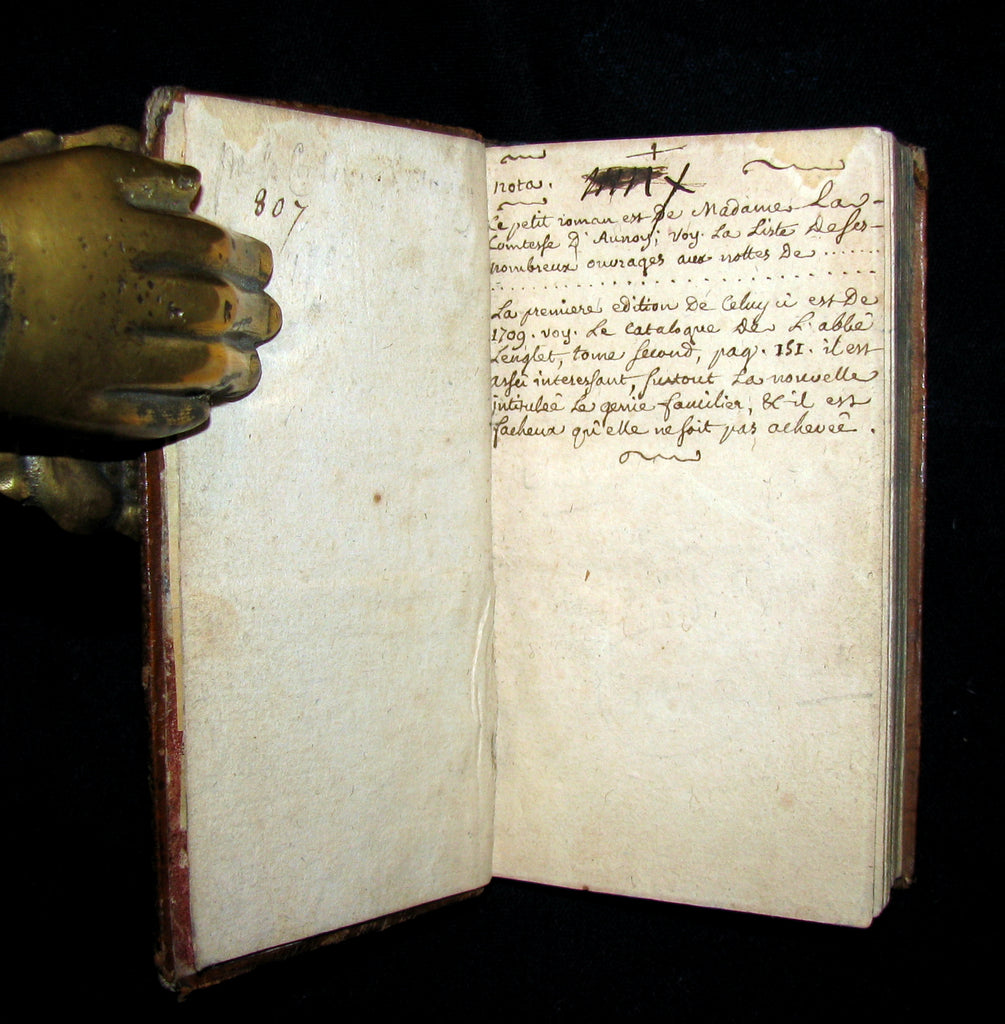 807
nota.
Le petit roman est de Madame La
Comtesse d'Aunoy; voy. La Liste de ses
nombreux ouvrages aux nottes de ......
. . . . . . . . . . . . . . . . . . . . . . . .
La premiere edition de Celuy ci est de
1709. voy. Le Catalogue de L'abbé
Lenglet, tome second, pag. 151. il est
assés interessant, surtout La nouvelle
intitulée Le genie familier, & il est
facheux qu'elle ne soit pas achevée.